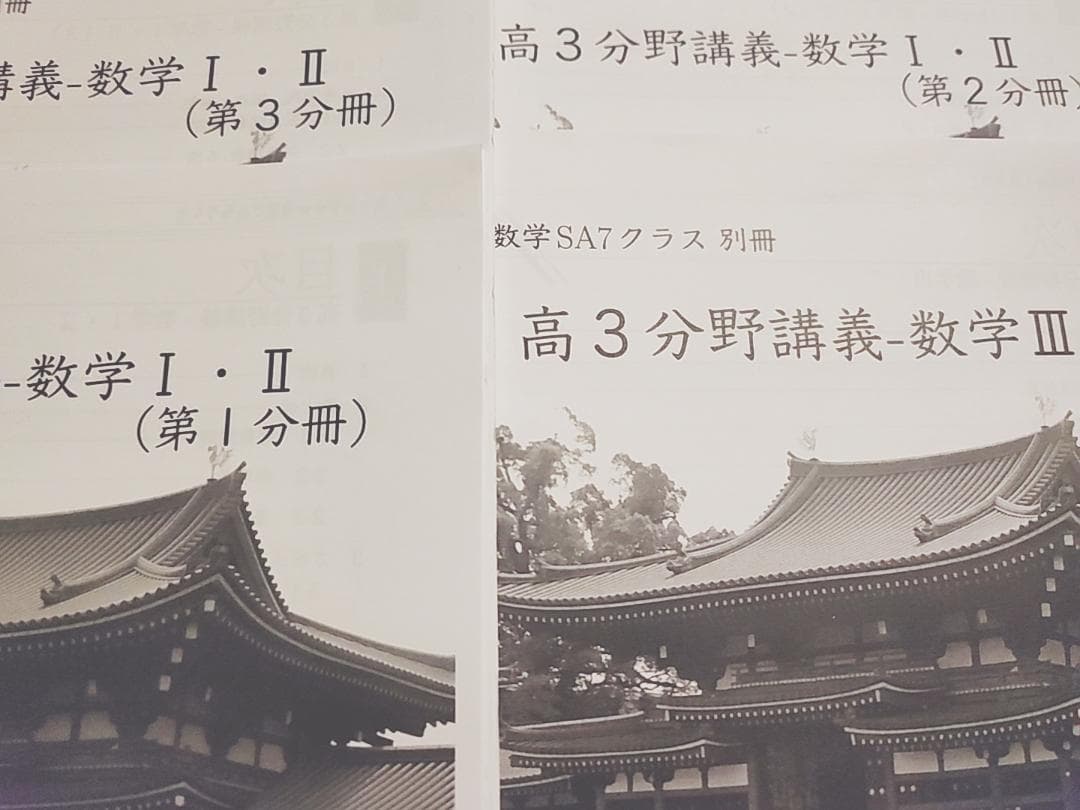 別冊
講義-数学Ⅰ・Ⅱ
(第3分冊)
高3分野講義-数学Ⅰ・Ⅱ
(第2分冊)
-数学Ⅰ・Ⅱ
(第1分冊)
数学SA7クラス 別冊
高3分野講義-数学Ⅲ